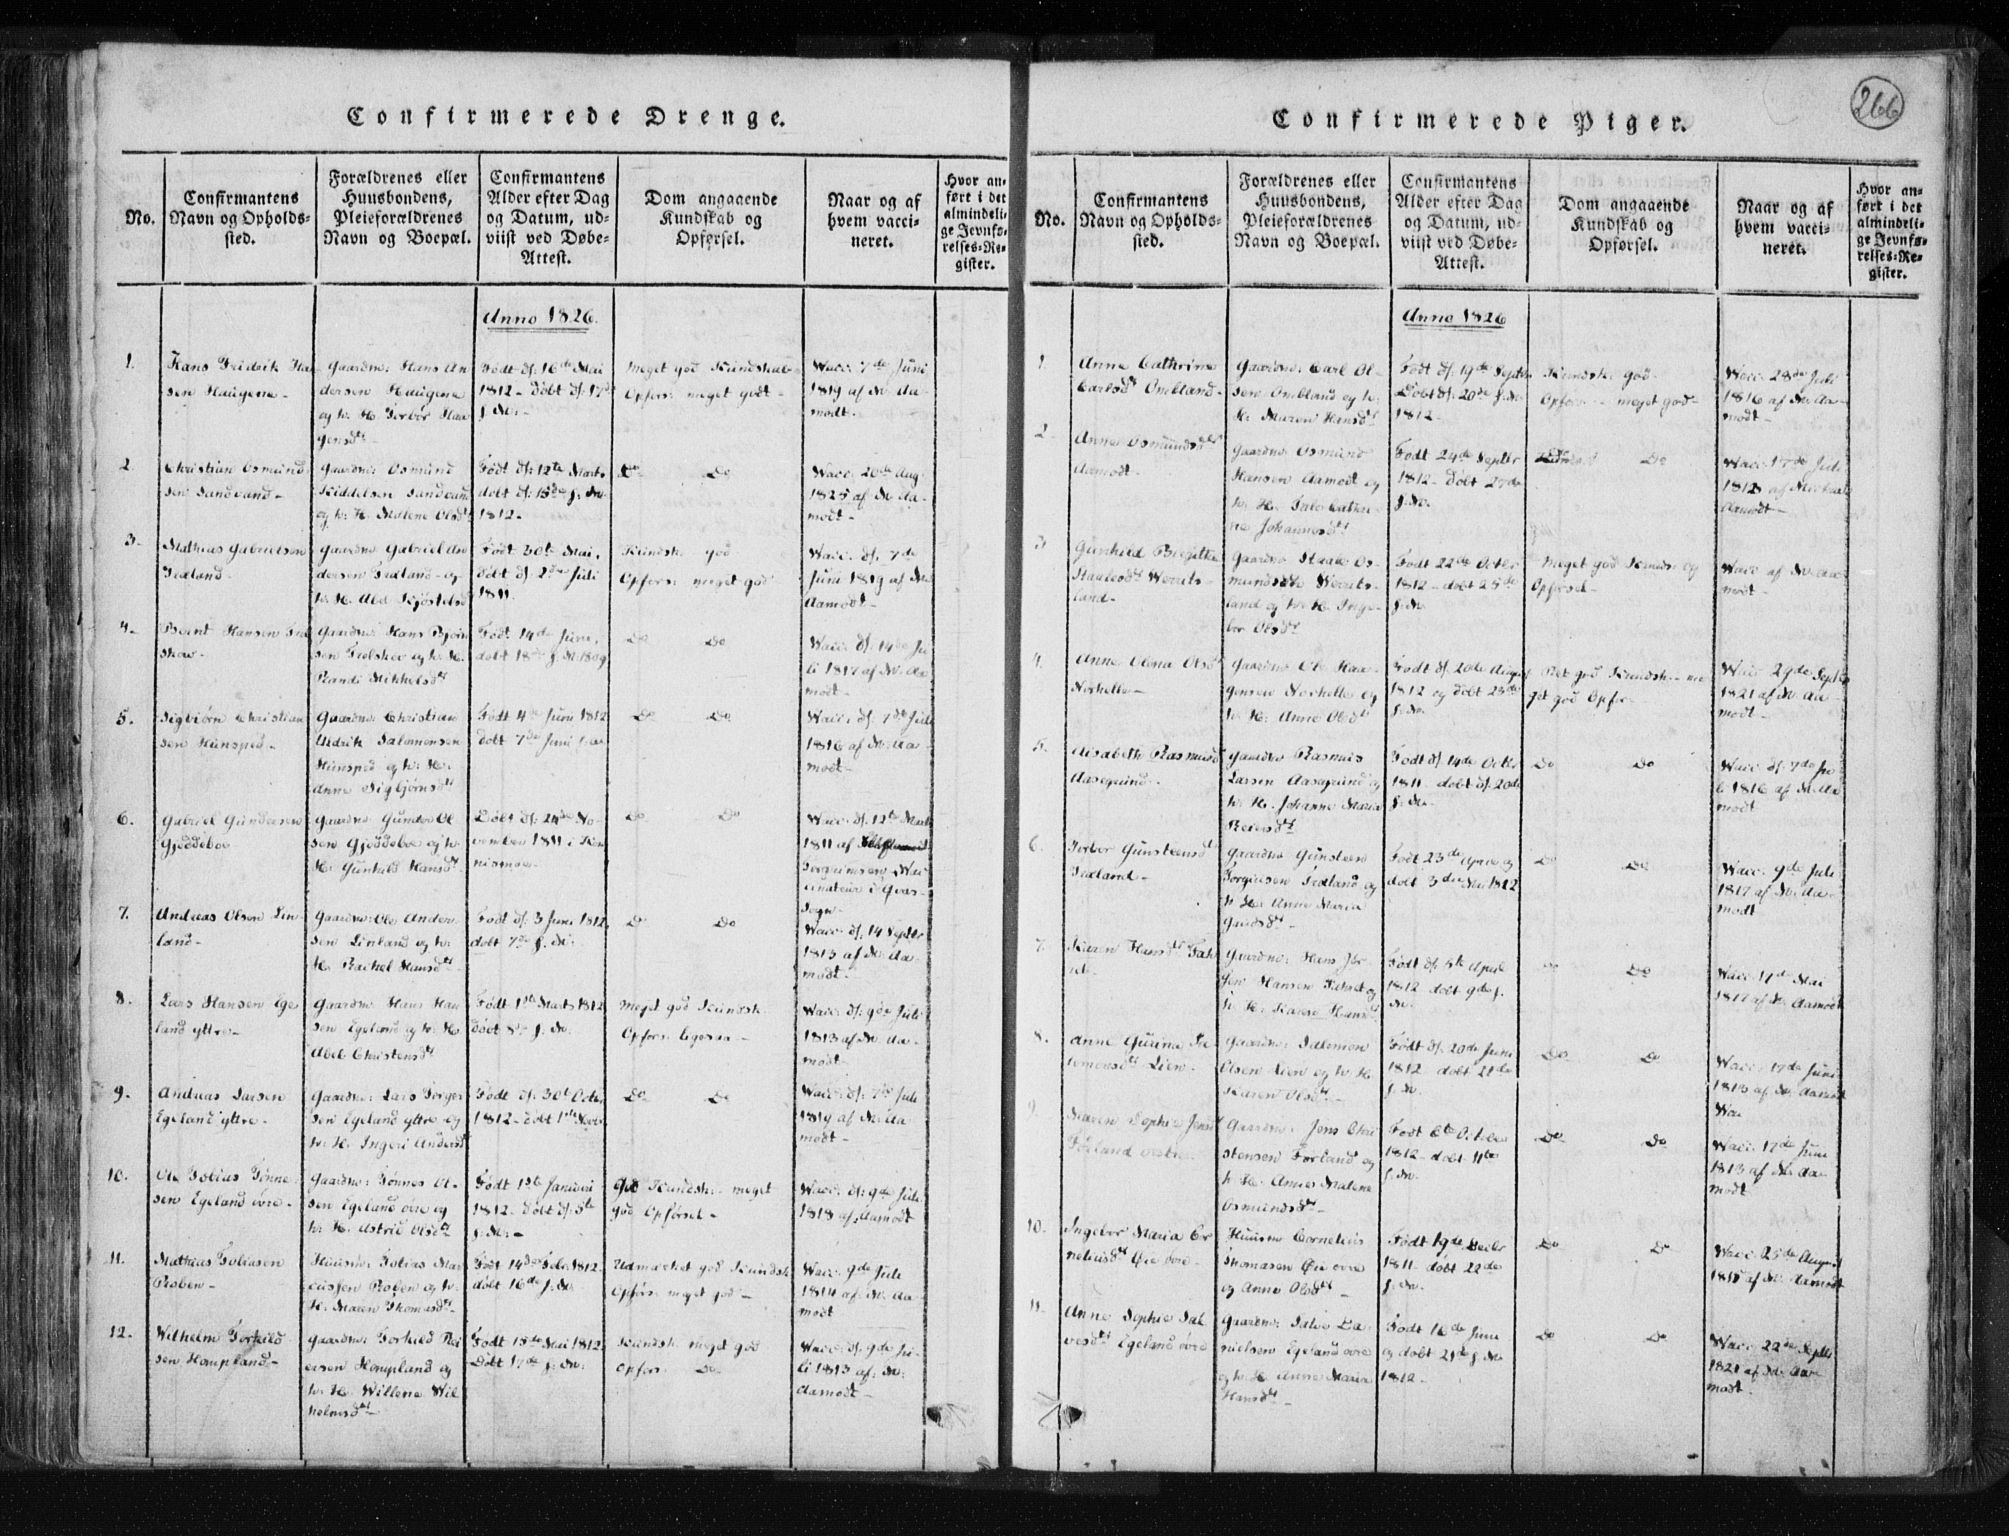 Confirmerede Drenge.
No.
Confirmantens
Navn og Opholds-
sted.
Forældrenes eller
Huusbondens,
Pleieforældrenes
Navn og Boepæl.
Confirmantens
Alder efter Dag
og Datum, ud-
viist ved Døbe-
Attest.
Dom angaaende
Kundskab og
Opførsel.
Naar og af
hvem vacci-
neret.
Hvor an-
ført i det
almindeli-
ge Jevnfø-
relses-Re-
gister.
Anno 1826.
1.
Hans Fridrik Han
sen Haugene-
Gaardm: Hans An
dersen Haugene
og h: K: Torbor Haa
gensdt
Født d: 16de Mai
1812- døbt d: 17de
Meget god Kundskab-
Opførs: meget godt-
Wacc: 7de Juni
1819 af Aa-
modt-
2.
Christian Osmund
sen Sandvand-
Gaardm: Osmund
Kiddelsen Sandvand
og h: K: Malene Olsdt
Født d: 12te Marts
døbt d: 15de
1812-
Do Do
Wacc: 20de Aug
1825 af Aa-
modt-
3.
Mathias Gabrielsen
Gaardm: Gabriel An
dersen og
h: K:
Født 30te Mai,
døbt d: 2den Juli
1811.
Kundsk: god
Opførs: meget god
Wacc: d: 7de
Juni 1819 af
Aamodt-
4.
Bernt Hansen
Gaardm: Hans
sen og h: K:
Randi Mikkelsdt
Født 14de Juni,
døbt 18de 1809
Do Do
Wacc: d: 14de Ju
li 1817 af Aa
modt-
5.
Sigbiørn Christian
sen Hunsped-
Gaardm: Christian
Salomonsen
Hunsped og h: K:
Anna Sigbjørnsdt
Født 4de Juni 1812
døbt 7de Juni
Do Do
Wacc: d: 7de Juli
1816 af Aa-
modt-
6.
Gabriel Gundersen
Gjeddeboe
Gaardm: Gunder Ol
sen Gjeddeboe og h:
K: Gunhild Hansdt
Døbt d: 24de No-
vember 1811 i
Do Do
Wacc: d: 12te Marts
1811 af
7.
Andreas Olsen Lin
land-
Gaardm: Ole Ander
sen Linland og h:
K: Rachel Hansdt
Født d: 3 Juni 1812,
døbt 7de
Do Do
Wacc: d: 14 Septbr
1813 af Aa-
modt-
8.
Lars Hansen Ege
land yttre-
Gaardm: Hans Han
sen Egeland og h: K:
Abel Christensdt
Født 1ste Marts 1812
døbt 8de
meget god Kundsk
Opførs: ligesaa-
Wacc: d: 9de Juli
1813 af Aa-
modt-
9.
Andreas Larsen
Egeland yttre-
Gaardm: Lars
sen Egeland yttre og
h: K: Ingeri Andersdt
Født d: 30te Octbr
1812- døbt 1ste Novbr
Do Do
Wacc: d: 7de Juli
1819 af Aa-
modt-
10.
Ole Tobias Tønne-
sen Egeland øvre-
Gaardm: Tønnes Ol-
sen Egeland øvre og
h: K: Astrid Olsdt
Født 1ste Januari
1812- døbt d: 5te
God Kundsk:- meget
god Opførsel-
Wacc: d: 9de Juli
1818 af Aamodt
11.
Mathias Tobiasen
Roben-
Huusm: Tobias Mar
cussen Roben og h:
K: Maren Thomasdt
Født 14de Febr 1812-
døbt 16de
Udmærket god Kundsk
Opførs: meget god-
Wacc: 9de Juli
1814 af Aa-
modt
12.
Wilhelm Torkild
sen Hompland-
Gaardm: Torkild Rei
ersen Hompland og
h: K: Willene Wil
helmsdt-
Født 15de Mai 1812,
døbt 17de
Kundsk: meget god
Opførs: Do-
Wacc: d: 9de Ju
li 1813 af
Aamodt-
Confirmerede Piger.
266
No.
Confirmantens
Navn og Opholds-
sted.
Forældrenes eller
Huusbondens,
Pleieforældrenes
Navn og Boepæl.
Confirmantens
Alder efter Dag
og Datum, ud-
viist ved Døbe-
Attest.
Dom angaaende
Kundskab og
Opførsel.
Naar og af
hvem vacci-
neret.
Hvor an-
ført i det
almindeli-
ge Jevnfø-
relses-Re-
gister.
Anno 1826
1.
Anne Cathrine
Carlsdt Ombland-
Gaardm: Carl Ol-
sen Ombland og h:
K: Maren Hansdt
Født d: 19de Septbr
Døbt d: 20de
1812-
Kundsk: god-
Opførs- meget god-
Wacc: 28de Juli
1816 af Aa-
modt-
2.
Anne Osmundsdt
Aamodt-
Gaardm: Osmund
Hansen Aamodt og
h: K: Cathri-
ne Johannesdt
Født 24de Septbr
1812- døbt 27de
Do
Wacc: 17de Juli
1813 af
Aamodt-
3
Gunhild Birgitte
Staalesdt
land-
Gaardm: Staale Os-
mundsen
land og h: K: Inge-
bor Olsdt
Født 22de Octbr
1812- døbt 25de
Meget god Kunds: og
Opførsel-
Wacc: af Aa-
modt-
4.
Anne Olena Olsdt
Norhelle-
Gaardm: Ole Haa-
gensen Norhelle og
h: K: Anne Olsdt
Født d: 20de August
1812 og døbt 23de
Ret god Kundsk:- me
get god Opfør-
Wacc 29de Septbr
1821 af Aa-
modt-
5.
Elisabeth Rasmusdt
Aasegrund-
Gaardm: Rasmus
Larsen Aasegrund og
h: K: Johanne Maria
Reiersdt
Født d: 14de Octbr
1811- døbt d: 20de
Do Do
Wacc: d: 7de Ju
li 1816 af Aa
modt
6.
Torbor Gunsteensdt
Gaardm: Gunsteen
Torgiusen og
h: K: Anne Maria
Født 23de April og
døbt 3die Mai 1812
Do Do
Wacc: 9de Juli
1817 af Aa-
modt
7.
Karen Hansdt
Gaardm: Hans Jør
gen Hansen og
h: K: Karen Hansdt
Født d: 5te April
1812 døbt 9de
Do
Wacc: 17de Mai
1817 af Aamodt
8.
Anne Gurina Sa-
lomonsdt Lien-
Gaardm: Salomon
Olsen Lien og h: K:
Karen Olsdt
Født d: 20de Juni
1812 døbt 21de
Do Do
Wacc: 17de Juni
1813 af Aamodt
9.
Maren Sophie Jensdt
Førland
Gaardm: Jens Chri
stensen Førland og
h: K: Malene
Osmundsdt-
Født 6te October
1812- døbt 11te
Do Do
Wacc: 17de Juni
1813 af Aa-
modt
10.
Ingebor Maria Cor
neliusdt Øie øvre-
Huusm: Cornelius
Thomasen Øie øvre
og Anne Olsdt -
Født 19de Decbr
1811- døbt 22de
Do Do
Wacc: 25de August
1815 af Aamodt
11.
Anne Sophie Sal
vesdt Egeland øvre
Gaardm: Salve Da-
nielsen Egeland øvre
og h: K: Anne Maria
Hansdt-
Født 16de Juni
og døbt 21de
1812-
Do Do
Wacc: 22de Septbr
1821 af Aa-
modt-